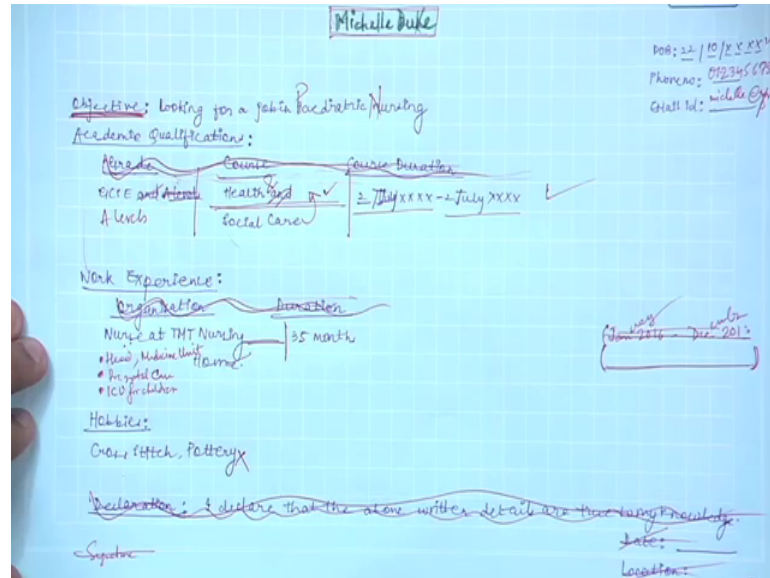 Michelle Duke
DOB: 22/10/XXXX
Phone no: 012345678
Email Id: michelle@
Objective: Looking for a job in Paediatric Nursing
Academic Qualifications:
Course Course Duration
GCSE and A levels Health and 2 July XXXX - 2 July XXXX
A levels Social Care
Work Experience:
Organisation Duration
Nurse at TMT Nursing 35 month
Home
January 2016 - December 201
• Head, Medicine Unit
• Care
• ICU for children
Hobbies:
Cross stitch, Pottery
Declaration: I declare that the above written details are true to my knowledge.
Date:
Signature
Location: